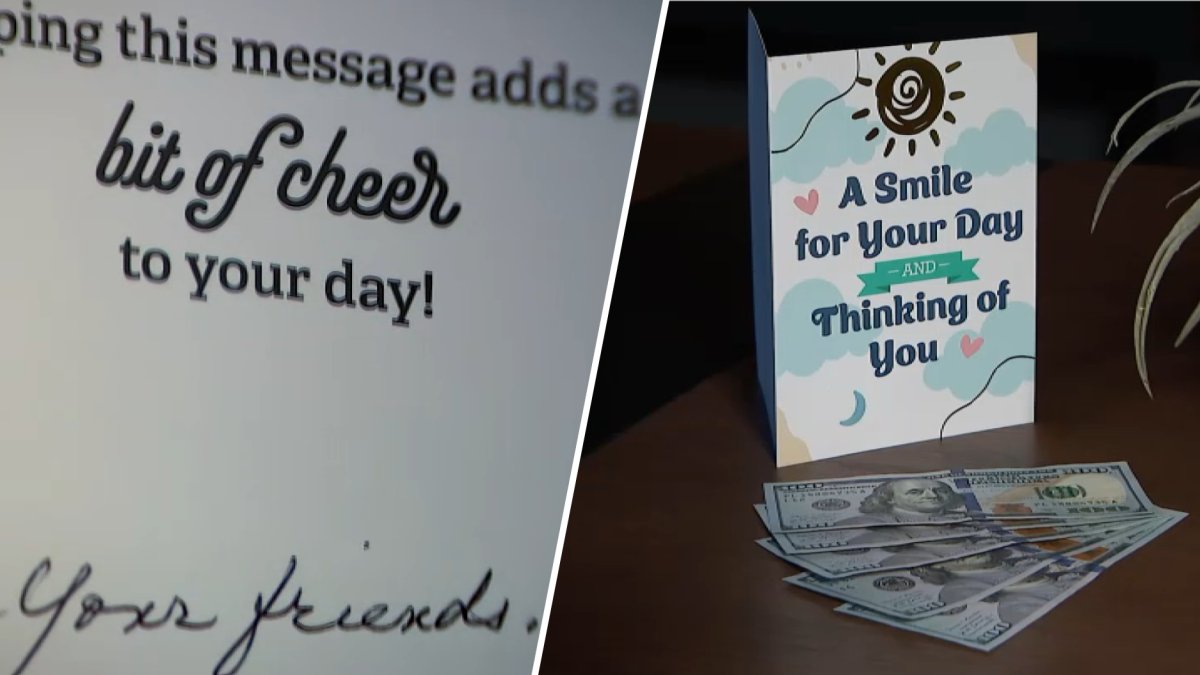 ping this message adds a
bit of cheer
to your day!
Your friends.
A Smile
for Your Day
AND
Thinking of
You
100
100